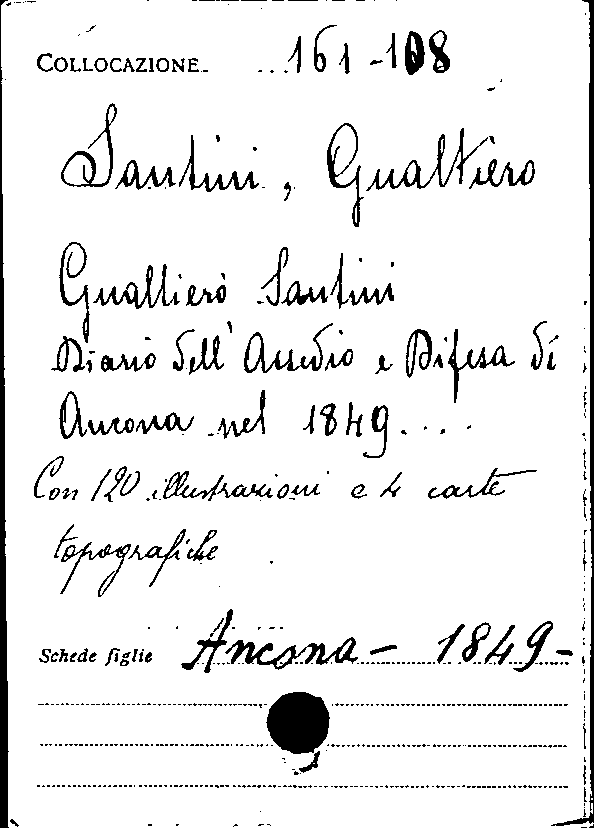 COLLOCAZIONE 161-108
Santini, Gualtiero
Gualtiero Santini
Diario dell'Assedio e Difesa di
Ancona nel 1849....
Con 120 illustrazioni e 4 carte
topografiche
Schede figlie Ancona - 1849-